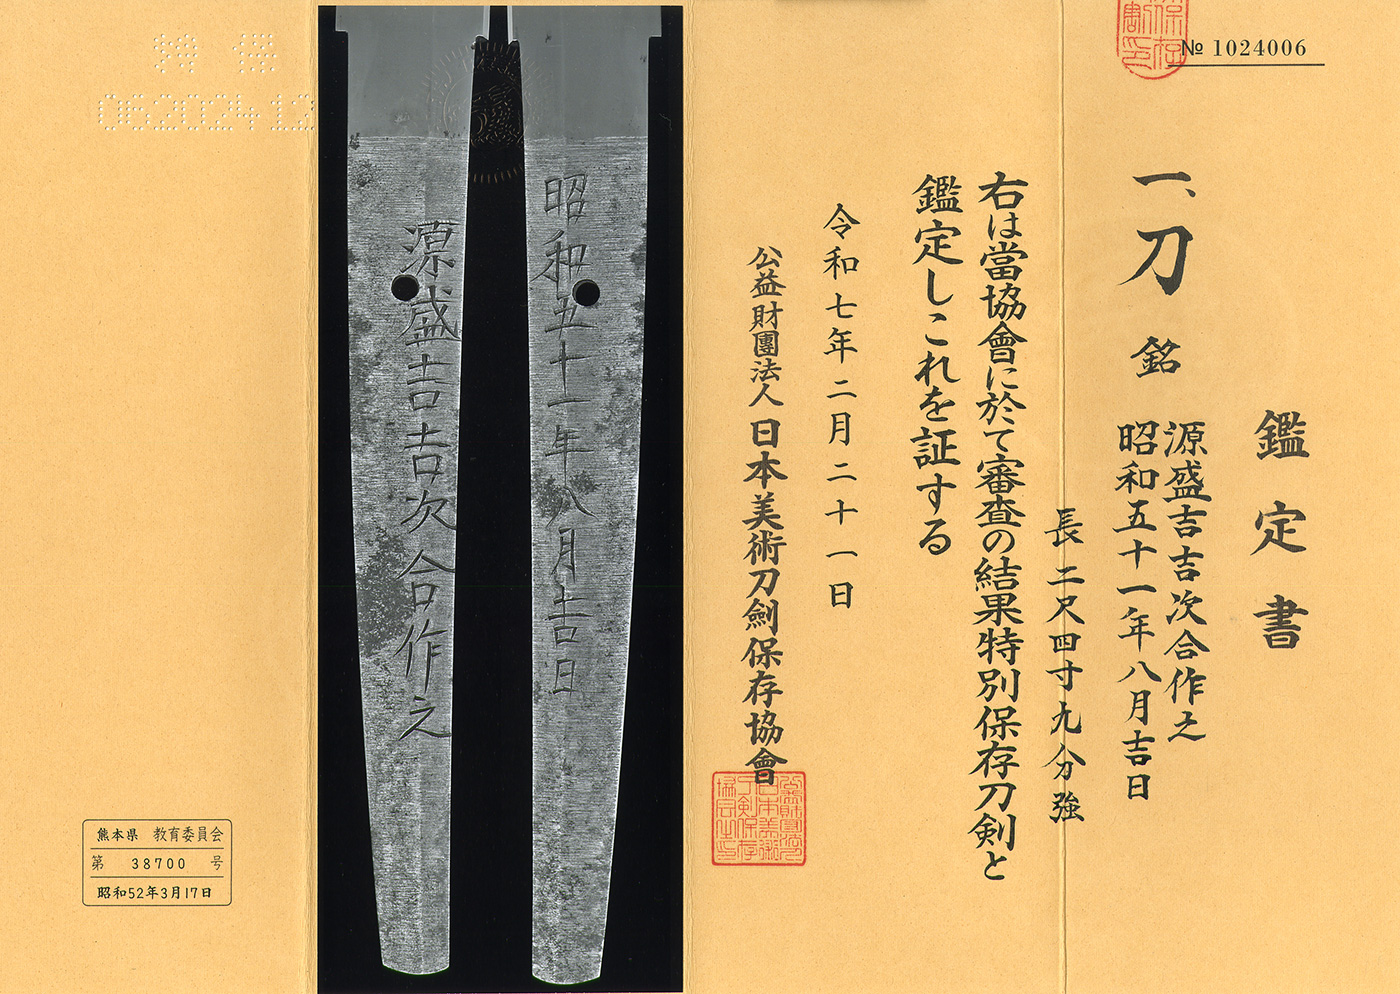 № 1024006
鑑定書
一、刀 銘 源盛吉吉次合作之
昭和五十一年八月吉日
長二尺四寸九分強
右は當協會に於て審査の結果特別保存刀剣と
鑑定しこれを証する
令和七年二月二十一日
公益財團法人 日本美術刀劍保存協會
昭和五十一年八月吉日
源盛吉吉次合作之
0620024 12
熊本県 教育委員会
第 38700 号
昭和52年3月17日